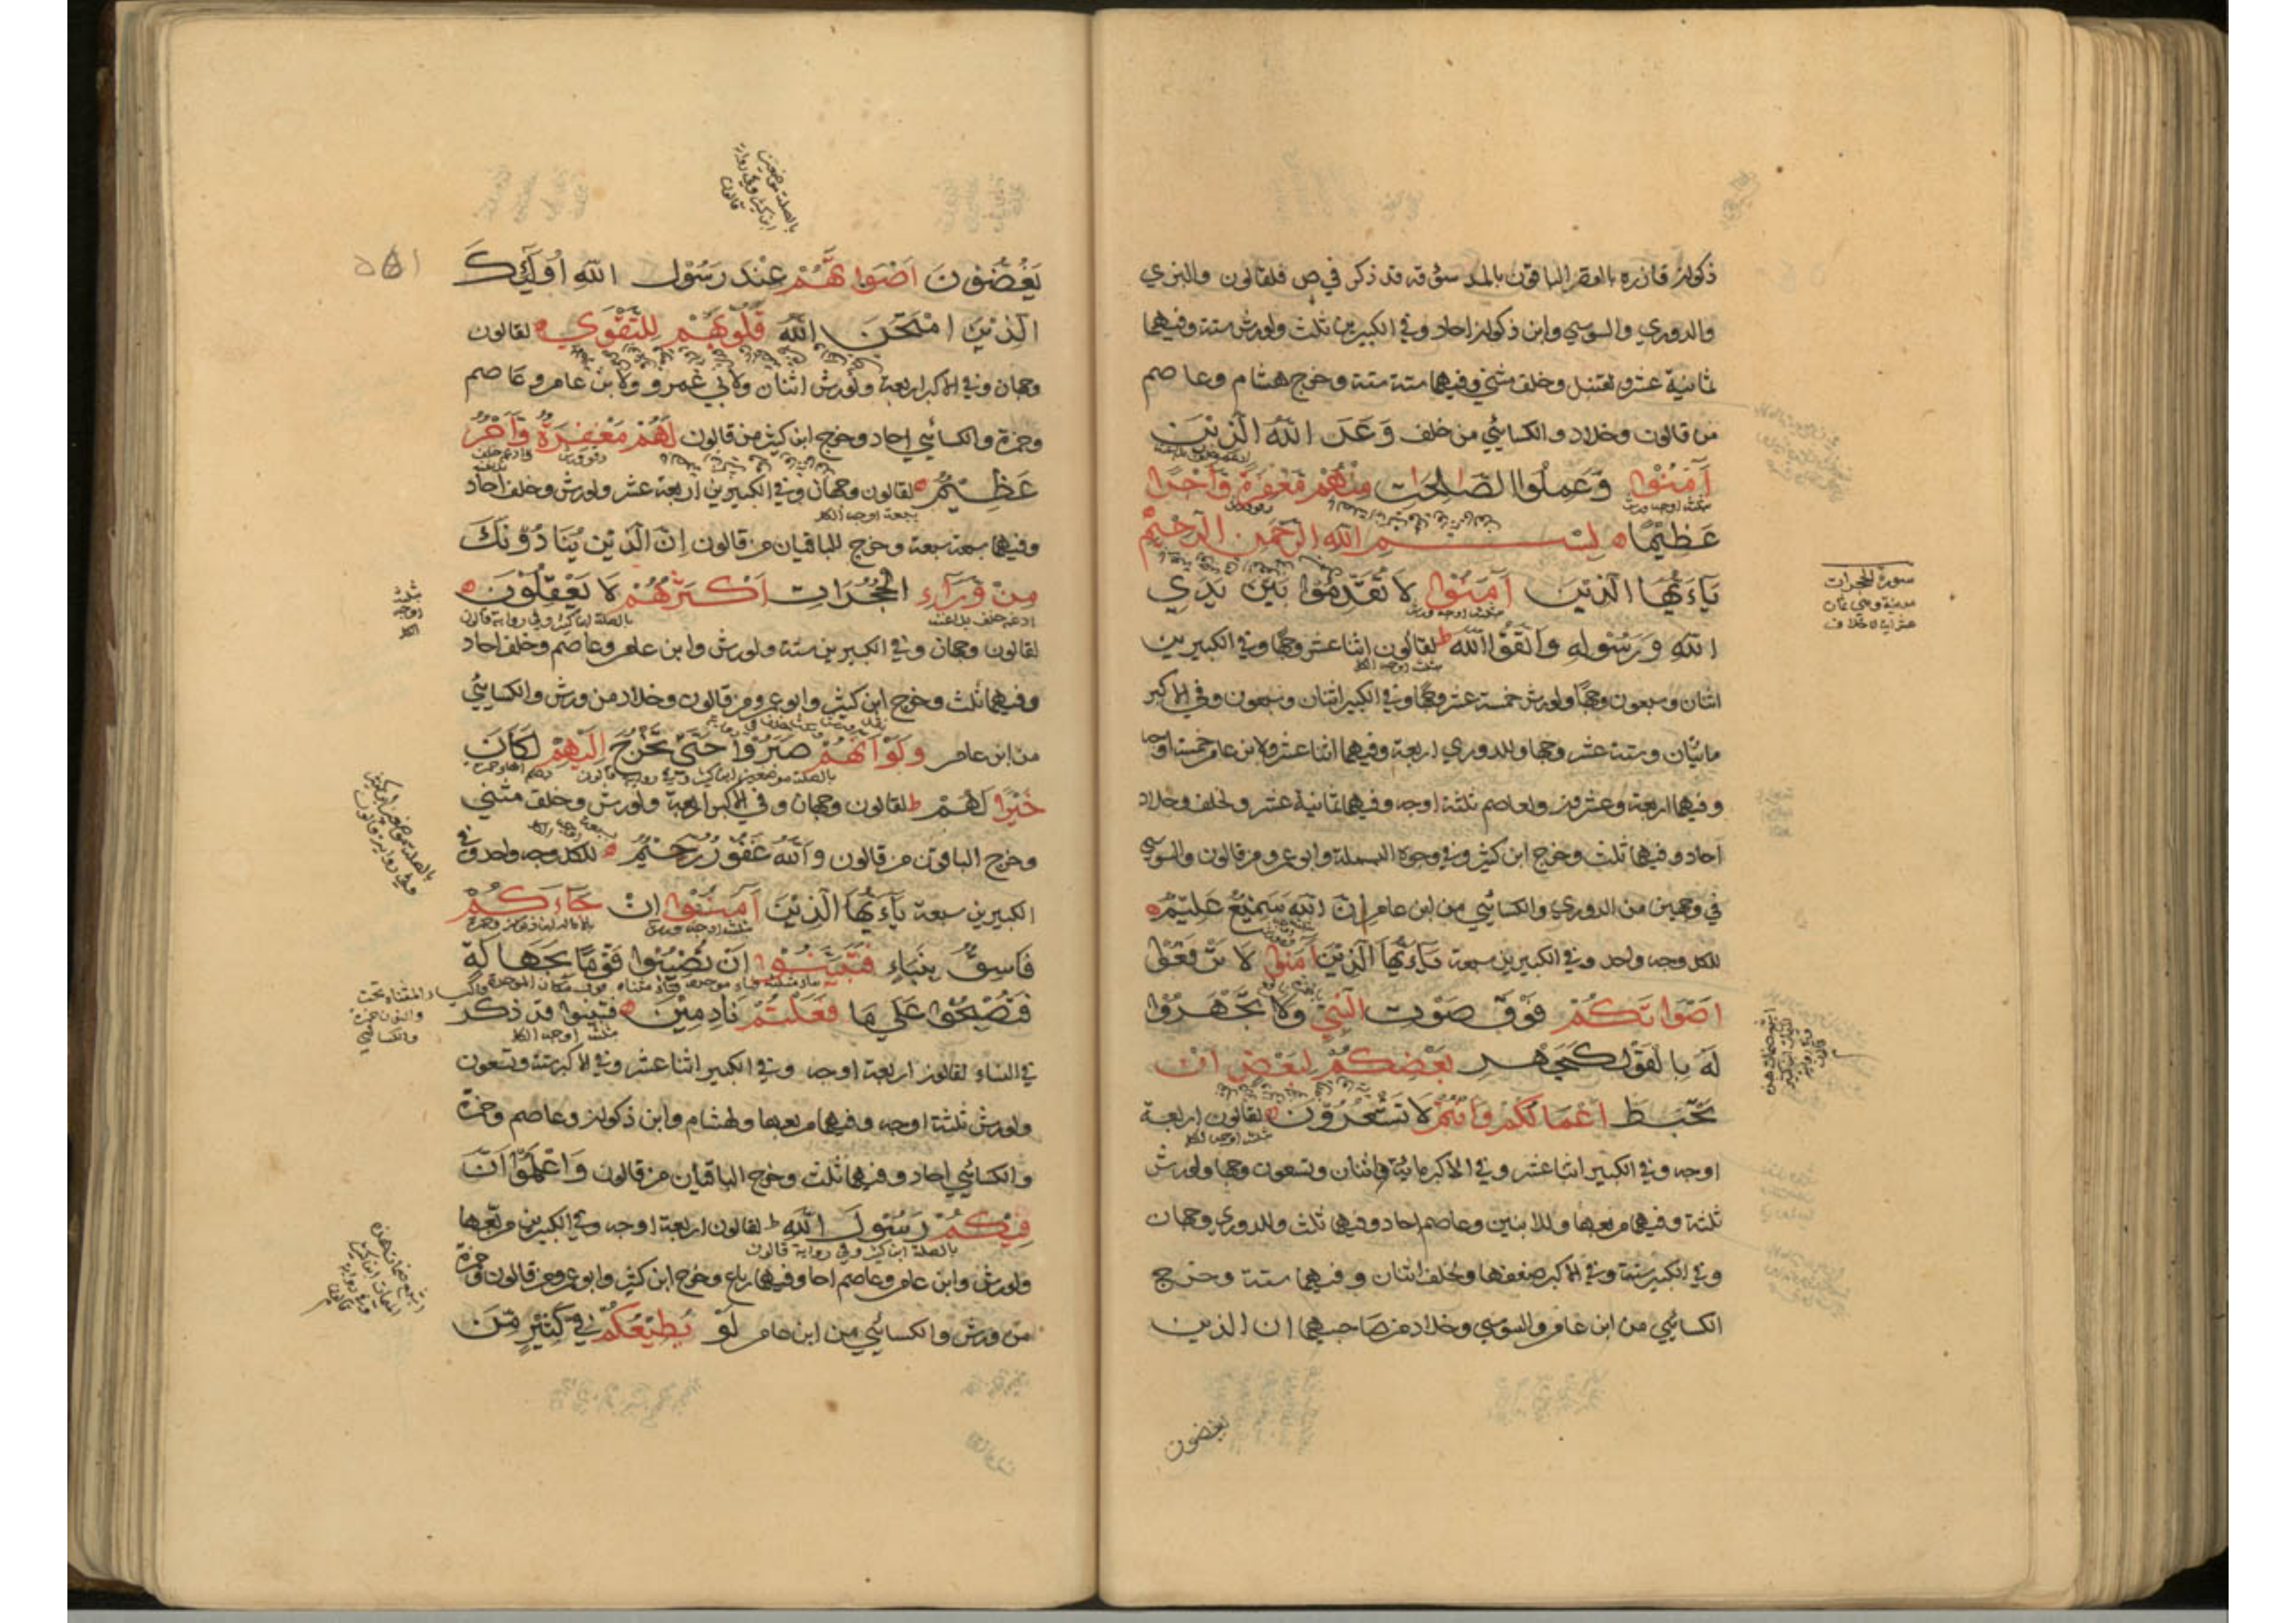 ذكوان فازره بالقصر الباقون بالمد سوقه قد ذكر في ص فلقالون والبزي
والدوري والسوسي وابن ذكوان احاد وفي الكبيرين ثلث ولورش ستة وفيهما
ثمانية عشر ولقنبل وخلف مثنى وفيهما ستة ستة وخرج هشام وعاصم
من قالون وخلاد والكسائي من خلف وَعَدَ اللهُ الَّذِيْنَ
آمَنُوْا وَعَمِلُوا الصَّالِحَاتِ مِنْهُمْ مَغْفِرَةً وَاَجْرًا
عَظِيْمًا بِسْمِ اللهِ الرَّحْمٰنِ الرَّحِيْمِ
يَآءَيُّهَا الَّذِيْنَ آمَنُوْا لَا تُقَدِّمُوْا بَيْنَ يَدَيِ
اللهِ وَرَسُوْلِهِ وَاتَّقُوا اللهَ ط لقالون اثنا عشر وجها وفي الكبيرين
اثنان وسبعون وجها ولورش خمسة عشر وجها وفي الكبير اثنان وسبعون وفي الاكبر
مائتان وستة عشر وجها وللدوري اربعة وفيهما اثنا عشر ولابن عامر خمسة اوجه
وفيهما اربعة وعشرون ولعاصم ثلثة اوجه وفيهما ثمانية عشر ولخلف وخلاد
احاد وفيهما ثلث وخرج ابن كثير وفي وجوه البسملة وابو عمرو من قالون والسوسي
في وجهين من الدوري والكسائي من ابن عامر اِنَّ اللهَ سَمِيْعٌ عَلِيْمٌ
للكل وجه واحد وفي الكبيرين سبعة يَآءَيُّهَا الَّذِيْنَ آمَنُوْا لَا تَرْفَعُوْا
اَصْوَاتَكُمْ فَوْقَ صَوْتِ النَّبِيِّ وَلَا تَجْهَرُوْا
لَهُ بِالْقَوْلِ كَجَهْرِ بَعْضِكُمْ لِبَعْضٍ اَنْ
تَحْبَطَ اَعْمَالُكُمْ وَاَنْتُمْ لَا تَشْعُرُوْنَ لقالون اربعة
اوجه وفي الكبير اثنا عشر وفي الاكبر مائة واثنان وتسعون وجها ولورش
ثلثة وفيهما مربعها وللابنين وعاصم احاد وفيها ثلث وللدوري وجهان
وفي الكبير ستة وفي الاكبر ضعفها ولخلف اثنان وفيهما ستة وخرج
الكسائي من ابن عامر والسوسي وخلاد من صاحبيهما ان الذين
يغضون
سورة الحجرات
مدنية وهي ثمان
عشر اية لا خلاف
يَغُضُّوْنَ اَصْوَاتَهُمْ عِنْدَ رَسُوْلِ اللهِ اُولٰٓئِكَ
الَّذِيْنَ امْتَحَنَ اللهُ قُلُوْبَهُمْ لِلتَّقْوٰي لقالون
وجهان وفي الاكبر اربعة ولورش اثنان ولابي عمرو ولابن عامر وعاصم
وحمزة والكسائي احاد وخرج ابن كثير من قالون لَهُمْ مَغْفِرَةٌ وَاَجْرٌ
عَظِيْمٌ لقالون وجهان وفي الكبيرين اربعة عشر ولورش وخلف احاد
وفيهما سبعة سبعة وخرج الباقيان من قالون اِنَّ الَّذِيْنَ يُنَادُوْنَكَ
مِنْ وَّرَآءِ الْحُجُرَاتِ اَكْثَرُهُمْ لَا يَعْقِلُوْنَ
ادغم خلف بلا غنة بالصلة ابن كثير وفي رواية قالون
لقالون وجهان وفي الكبيرين ستة ولورش وابن عامر وعاصم وخلف احاد
وفيهما ثلث وخرج ابن كثير وابو عمرو من قالون وخلاد من ورش والكسائي
من ابن عامر وَلَوْ اَنَّهُمْ صَبَرُوْا حَتّٰي تَخْرُجَ اِلَيْهِمْ لَكَانَ
خَيْرًا لَهُمْ ط لقالون وجهان وفي الاكبر اربعة ولورش وخلف مثنى
وخرج الباقون من قالون وَاللهُ غَفُوْرٌ رَحِيْمٌ للكل وجه واحد وفي
الكبيرين سبعة يَآءَيُّهَا الَّذِيْنَ آمَنُوْا اِنْ جَآءَكُمْ
فَاسِقٌ بِنَبَاٍ فَتَبَيَّنُوْا اَنْ تُصِيْبُوْا قَوْمًا بِجَهَالَةٍ
فَتُصْبِحُوْا عَلٰي مَا فَعَلْتُمْ نَادِمِيْنَ فتبينوا قد ذكر
في النساء لقالون اربعة اوجه وفي الكبير اثنا عشر وفي الاكبر ستة وتسعون
ولورش ثلثة اوجه وفيهما مربعها ولهشام وابن ذكوان وعاصم وحمزة
والكسائي احاد وفيهما ثلث وخرج الباقيان من قالون وَاعْلَمُوْا اَنَّ
فِيْكُمْ رَسُوْلَ اللهِ ط لقالون اربعة اوجه وفي الكبيرين مربعها
بالصلة ابن كثير وفي رواية قالون
ولورش وابن عامر وعاصم احاد وفيها رباع وخرج ابن كثير وابو عمرو من قالون وحمزة
من ورش والكسائي من ابن عامر لَوْ يُطِيْعُكُمْ فِيْ كَثِيْرٍ مِّنَ
بالصلة موضعين
ابن كثير وفي رواية
قالون